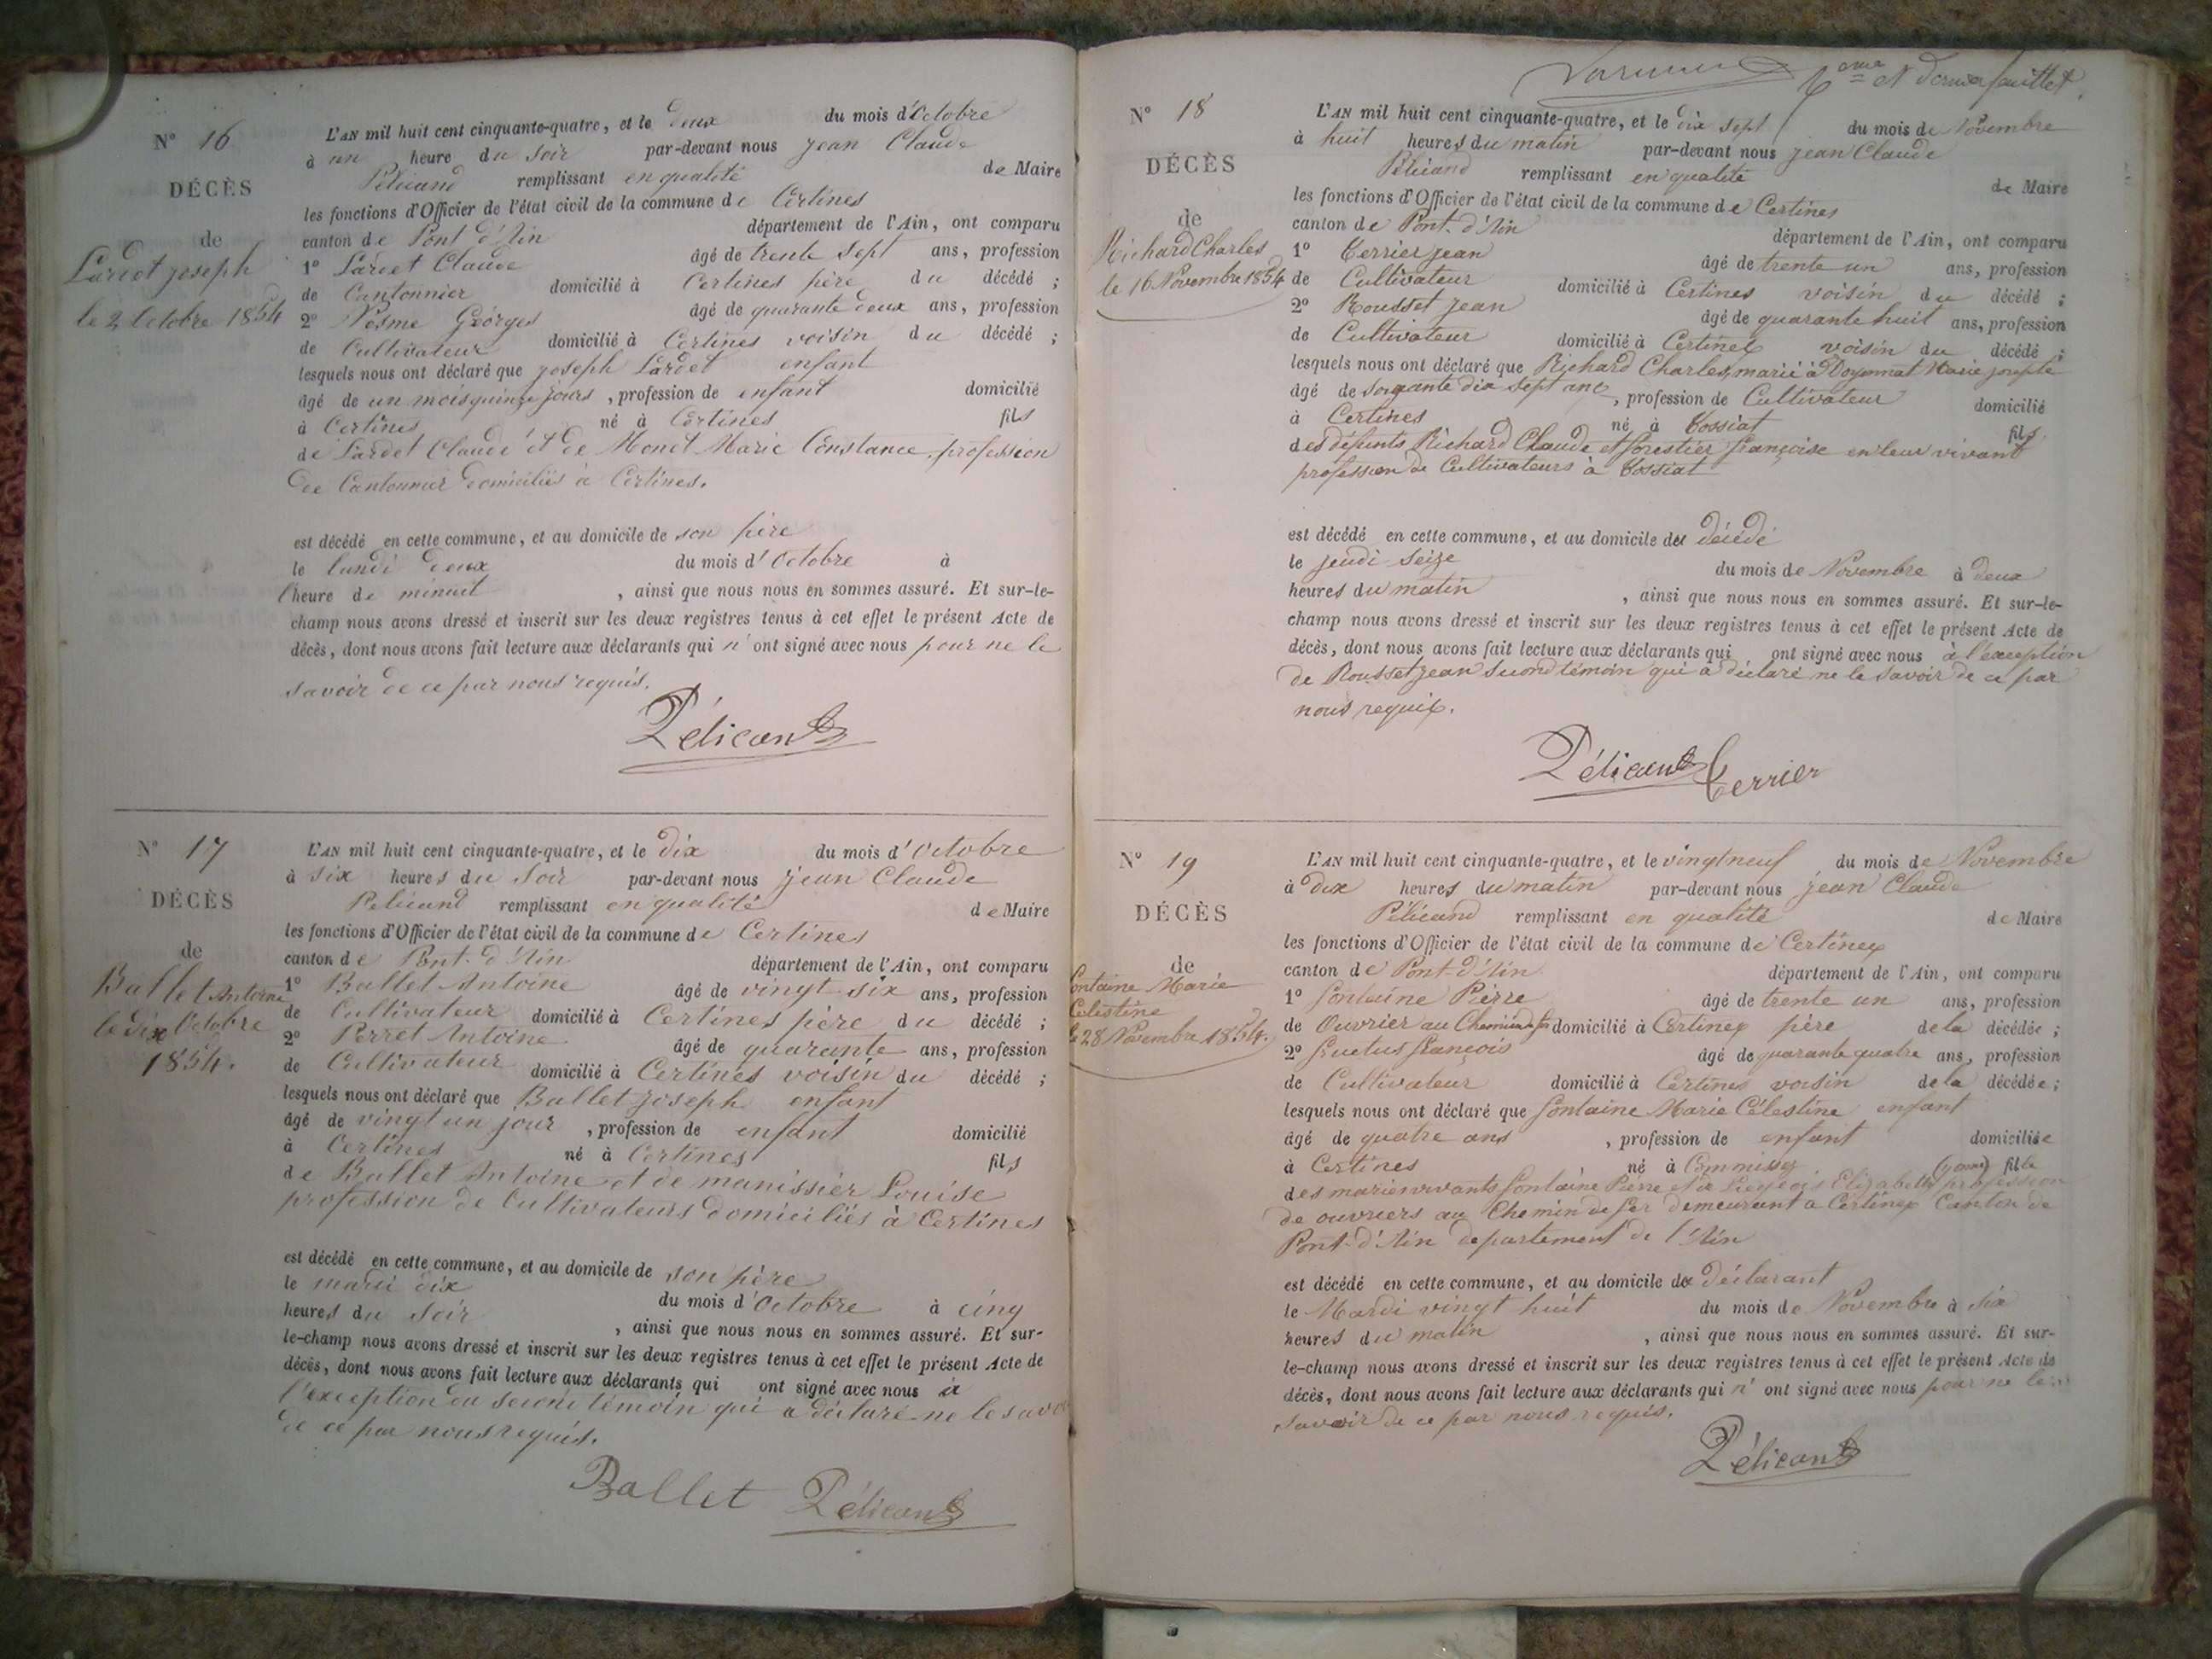 N° 16
DÉCÈS
de
Lardet joseph
le 2 Octobre 1854
L'AN mil huit cent cinquante-quatre, et le deux du mois d'Octobre
à un heure du soir par-devant nous jean Claude
Pélicand remplissant en qualité de Maire
les fonctions d'Officier de l'état civil de la commune de Certines
canton de Pont d'Ain département de l'Ain, ont comparu
1° Lardet Claude âgé de trente sept ans, profession
de Cantonnier domicilié à Certines père du décédé ;
2° Nesme Georges âgé de quarante deux ans, profession
de Cultivateur domicilié à Certines voisin du décédé ;
lesquels nous ont déclaré que joseph Lardet enfant
âgé de un mois quinze jours, profession de enfant domicilié
à Certines né à Certines fils
de Lardet Claude et de Monet Marie Constance, profession
de Cantonnier domiciliés à Certines.
est décédé en cette commune, et au domicile de son père
le lundi deux du mois d'Octobre à
l'heure de minuit, ainsi que nous nous en sommes assuré. Et sur-le-
champ nous avons dressé et inscrit sur les deux registres tenus à cet effet le présent Acte de
décès, dont nous avons fait lecture aux déclarants qui n'ont signé avec nous pour ne le
savoir de ce par nous requis.
Pélicand
N° 17
DÉCÈS
de
Ballet Antoine
le dix Octobre
1854.
L'AN mil huit cent cinquante-quatre, et le dix du mois d'Octobre
à six heures du soir par-devant nous jean Claude
Pelicand remplissant en qualité de Maire
les fonctions d'Officier de l'état civil de la commune de Certines
canton de Pont-d'Ain département de l'Ain, ont comparu
1° Ballet Antoine âgé de vingt six ans, profession
de Cultivateur domicilié à Certines père du décédé ;
2° Perret Antoine âgé de quarante ans, profession
de Cultivateur domicilié à Certines voisin du décédé ;
lesquels nous ont déclaré que Ballet joseph enfant
âgé de vingt un jour, profession de enfant domicilié
à Certines né à Certines fils
de Ballet Antoine et de manissier Louise
profession de Cultivateurs domiciliés à Certines
est décédé en cette commune, et au domicile de son père
le mardi dix du mois d'Octobre à cinq
heures du soir, ainsi que nous nous en sommes assuré. Et sur-
le-champ nous avons dressé et inscrit sur les deux registres tenus à cet effet le présent Acte de
décès, dont nous avons fait lecture aux déclarants qui ont signé avec nous à
l'exception du second témoin qui a déclaré ne le savoir
de ce par nous requis.
Ballet Pélicand
6eme et dernier feuillet.
N° 18
DÉCÈS
de
Richard Charles
le 16 Novembre 1854
L'AN mil huit cent cinquante-quatre, et le dix sept du mois de Novembre
à huit heures du matin par-devant nous jean Claude
Pélicand remplissant en qualité de Maire
les fonctions d'Officier de l'état civil de la commune de Certines
canton de Pont-d'Ain département de l'Ain, ont comparu
1° Terrier jean âgé de trente un ans, profession
de Cultivateur domicilié à Certines voisin du décédé ;
2° Rousset jean âgé de quarante huit ans, profession
de Cultivateur domicilié à Certines voisin du décédé ;
lesquels nous ont déclaré que Richard Charles, marié à Doyonnat Marie josephte
âgé de soixante dix sept ans, profession de Cultivateur domicilié
à Certines né à Tossiat fils
des défunts Richard Claude et forestier françoise en leur vivant
profession de Cultivateurs à Tossiat
est décédé en cette commune, et au domicile du décédé
le jeudi seize du mois de Novembre à deux
heures du matin, ainsi que nous nous en sommes assuré. Et sur-le-
champ nous avons dressé et inscrit sur les deux registres tenus à cet effet le présent Acte de
décès, dont nous avons fait lecture aux déclarants qui ont signé avec nous à l'exception
de Rousset jean second témoin qui a déclaré ne le savoir de ce par
nous requis.
Pélicand Terrier
N° 19
DÉCÈS
de
fontaine Marie
Celestine
le 28 Novembre 1854.
L'AN mil huit cent cinquante-quatre, et le vingt neuf du mois de Novembre
à dix heures du matin par-devant nous jean Claude
Pélicand remplissant en qualité de Maire
les fonctions d'Officier de l'état civil de la commune de Certines
canton de Pont-d'Ain département de l'Ain, ont comparu
1° fontaine Pierre âgé de trente un ans, profession
de Ouvrier au Chemin de fer domicilié à Certines père de la décédée ;
2° fruetus françois âgé de quarante quatre ans, profession
de Cultivateur domicilié à Certines voisin de la décédée ;
lesquels nous ont déclaré que fontaine Marie Célestine enfant
âgé de quatre ans, profession de enfant domiciliée
à Certines né à Commissey (yonne) fille
des mariés vivants fontaine Pierre et de Liegeois Elizabeth profession
de ouvriers au Chemin de fer demeurant à Certines Canton de
Pont-d'Ain departement de l'Ain
est décédé en cette commune, et au domicile du déclarant
le Mardi vingt huit du mois de Novembre à six
heures du matin, ainsi que nous nous en sommes assuré. Et sur-
le-champ nous avons dressé et inscrit sur les deux registres tenus à cet effet le présent Acte de
décès, dont nous avons fait lecture aux déclarants qui n'ont signé avec nous pour ne le
savoir de ce par nous requis.
Pélicand